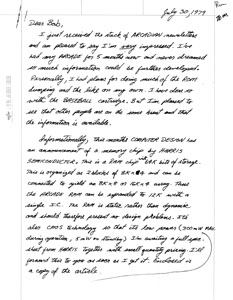 July 30, 1979
Dear Bob,
I just received the stack of ARCADIAN newsletters
and am pleased to say I'm very impressed. I've
had my ARCADE for 5 months now and never dreamed
so much information could be further developed.
Personally, I had plans for doing much of the ROM
dumping and the like on my own. I have done so
with the BASEBALL cartridge. But I'm pleased to
see that other people are on the same level and that
the information is available.
Informationally, this months COMPUTER DESIGN has
an announcement of a memory chip by HARRIS
SEMICONDUCTOR. This is a RAM chip with 64K bits of storage.
This is organized as 2 blocks of 8K × 4 and can be
committed to yield an 8K × 8 or 16K × 4 array. Thus
the ARCADE RAM can be expanded to 12K with a
single I.C. The RAM is static rather than dynamic
and should therefore present no design problems. It's
also CMOS technology so that its low power (200mW MAX
during operation, 5mW on standby). I'm awaiting a full spec.
sheet from HARRIS together with small quantity pricing. I'll
forward this to you as soon as I get it. Enclosed is
a copy of the article.